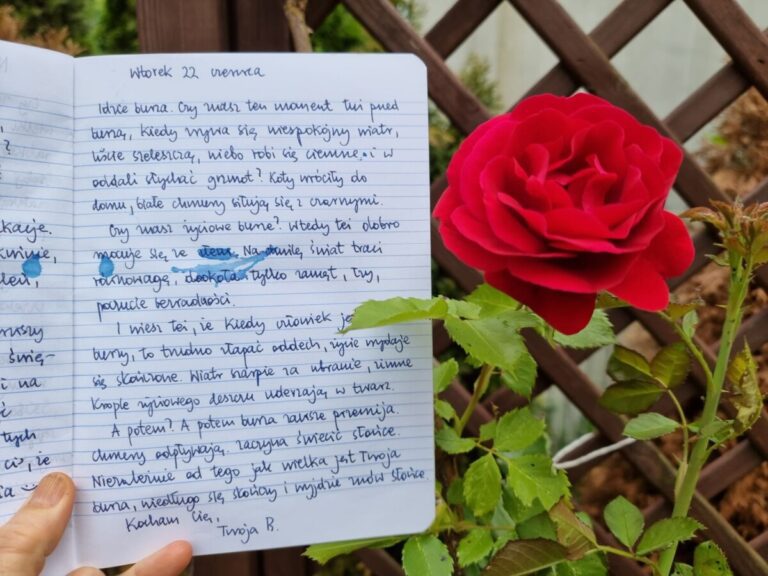 ?
kacje.
ruszy
świę-
i na
ć
tych
ci, że
Wtorek 22 czerwca
Idzie burza. Czy znasz ten moment tuż przed
burzą, kiedy zrywa się niespokojny wiatr,
liście szeleszczą, niebo robi się ciemne i w
oddali słychać grzmot? Koty wróciły do
domu, białe chmury siłują się z czarnymi.
Czy znasz życiowe burze? Wtedy też dobro
mocuje się ze złem. Na chwilę świat traci
równowagę, dookoła tylko zamęt, łzy,
poczucie bezradności.
I wiesz też, że kiedy człowiek je
burzy, to trudno złapać oddech, życie wydaje
się skończone. Wiatr szarpie za ubranie, zimne
krople życiowego deszczu uderzają w twarz.
A potem? A potem burza zawsze przemija.
Chmury odpływają. zaczyna świecić słońce.
Niezależnie od tego jak wielka jest Twoja
burza, niedługo się skończy i wyjdzie znów słońce.
Kocham Cię,
Twoja B.